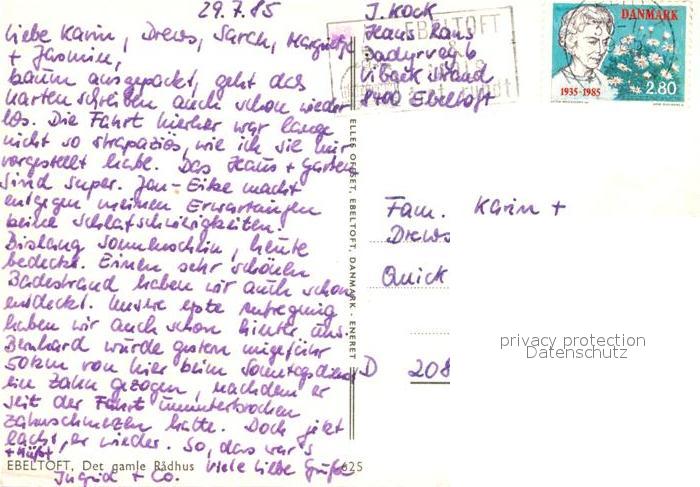 29.7.85
Liebe Karin, Drews, Sarah, Margret
+ Jasmin,
kaum ausgepackt, geht das
Karten schreiben auch schon wieder
los. Die Fahrt hierher war lange
nicht so strapaziös, wie ich sie mir
vorgestellt habe. Das Haus + Garten
sind super. Jan-Eike macht
entgegen meinen Erwartungen
keine Schlafschwierigkeiten.
Bislang Sonnenschein, heute
bedeckt. Einen sehr schönen
Badestrand haben wir auch schon
entdeckt. Unsere erste Aufregung
haben wir auch schon hinter uns.
Bernhard wurde gestern ungefähr
50km von hier beim Sonntagsdienst
ein Zahn gezogen, nachdem er
seit der Fahrt ununterbrochen
Zahnschmerzen hatte. Doch jetzt
lacht er wieder. So, das war's
viele liebe Grüße
Ingrid + Co.
EBELTOFT, Det gamle Rådhus
625
ELLES OFFSET, EBELTOFT, DANMARK - ENERET
J. Kock
Haus
Vibæk Strand
8400 Ebeltoft
EBELTOFT
DANMARK
1935-1985
2.80
Fam. Karin +
Drews
Quick
D 208
privacy protection
Datenschutz